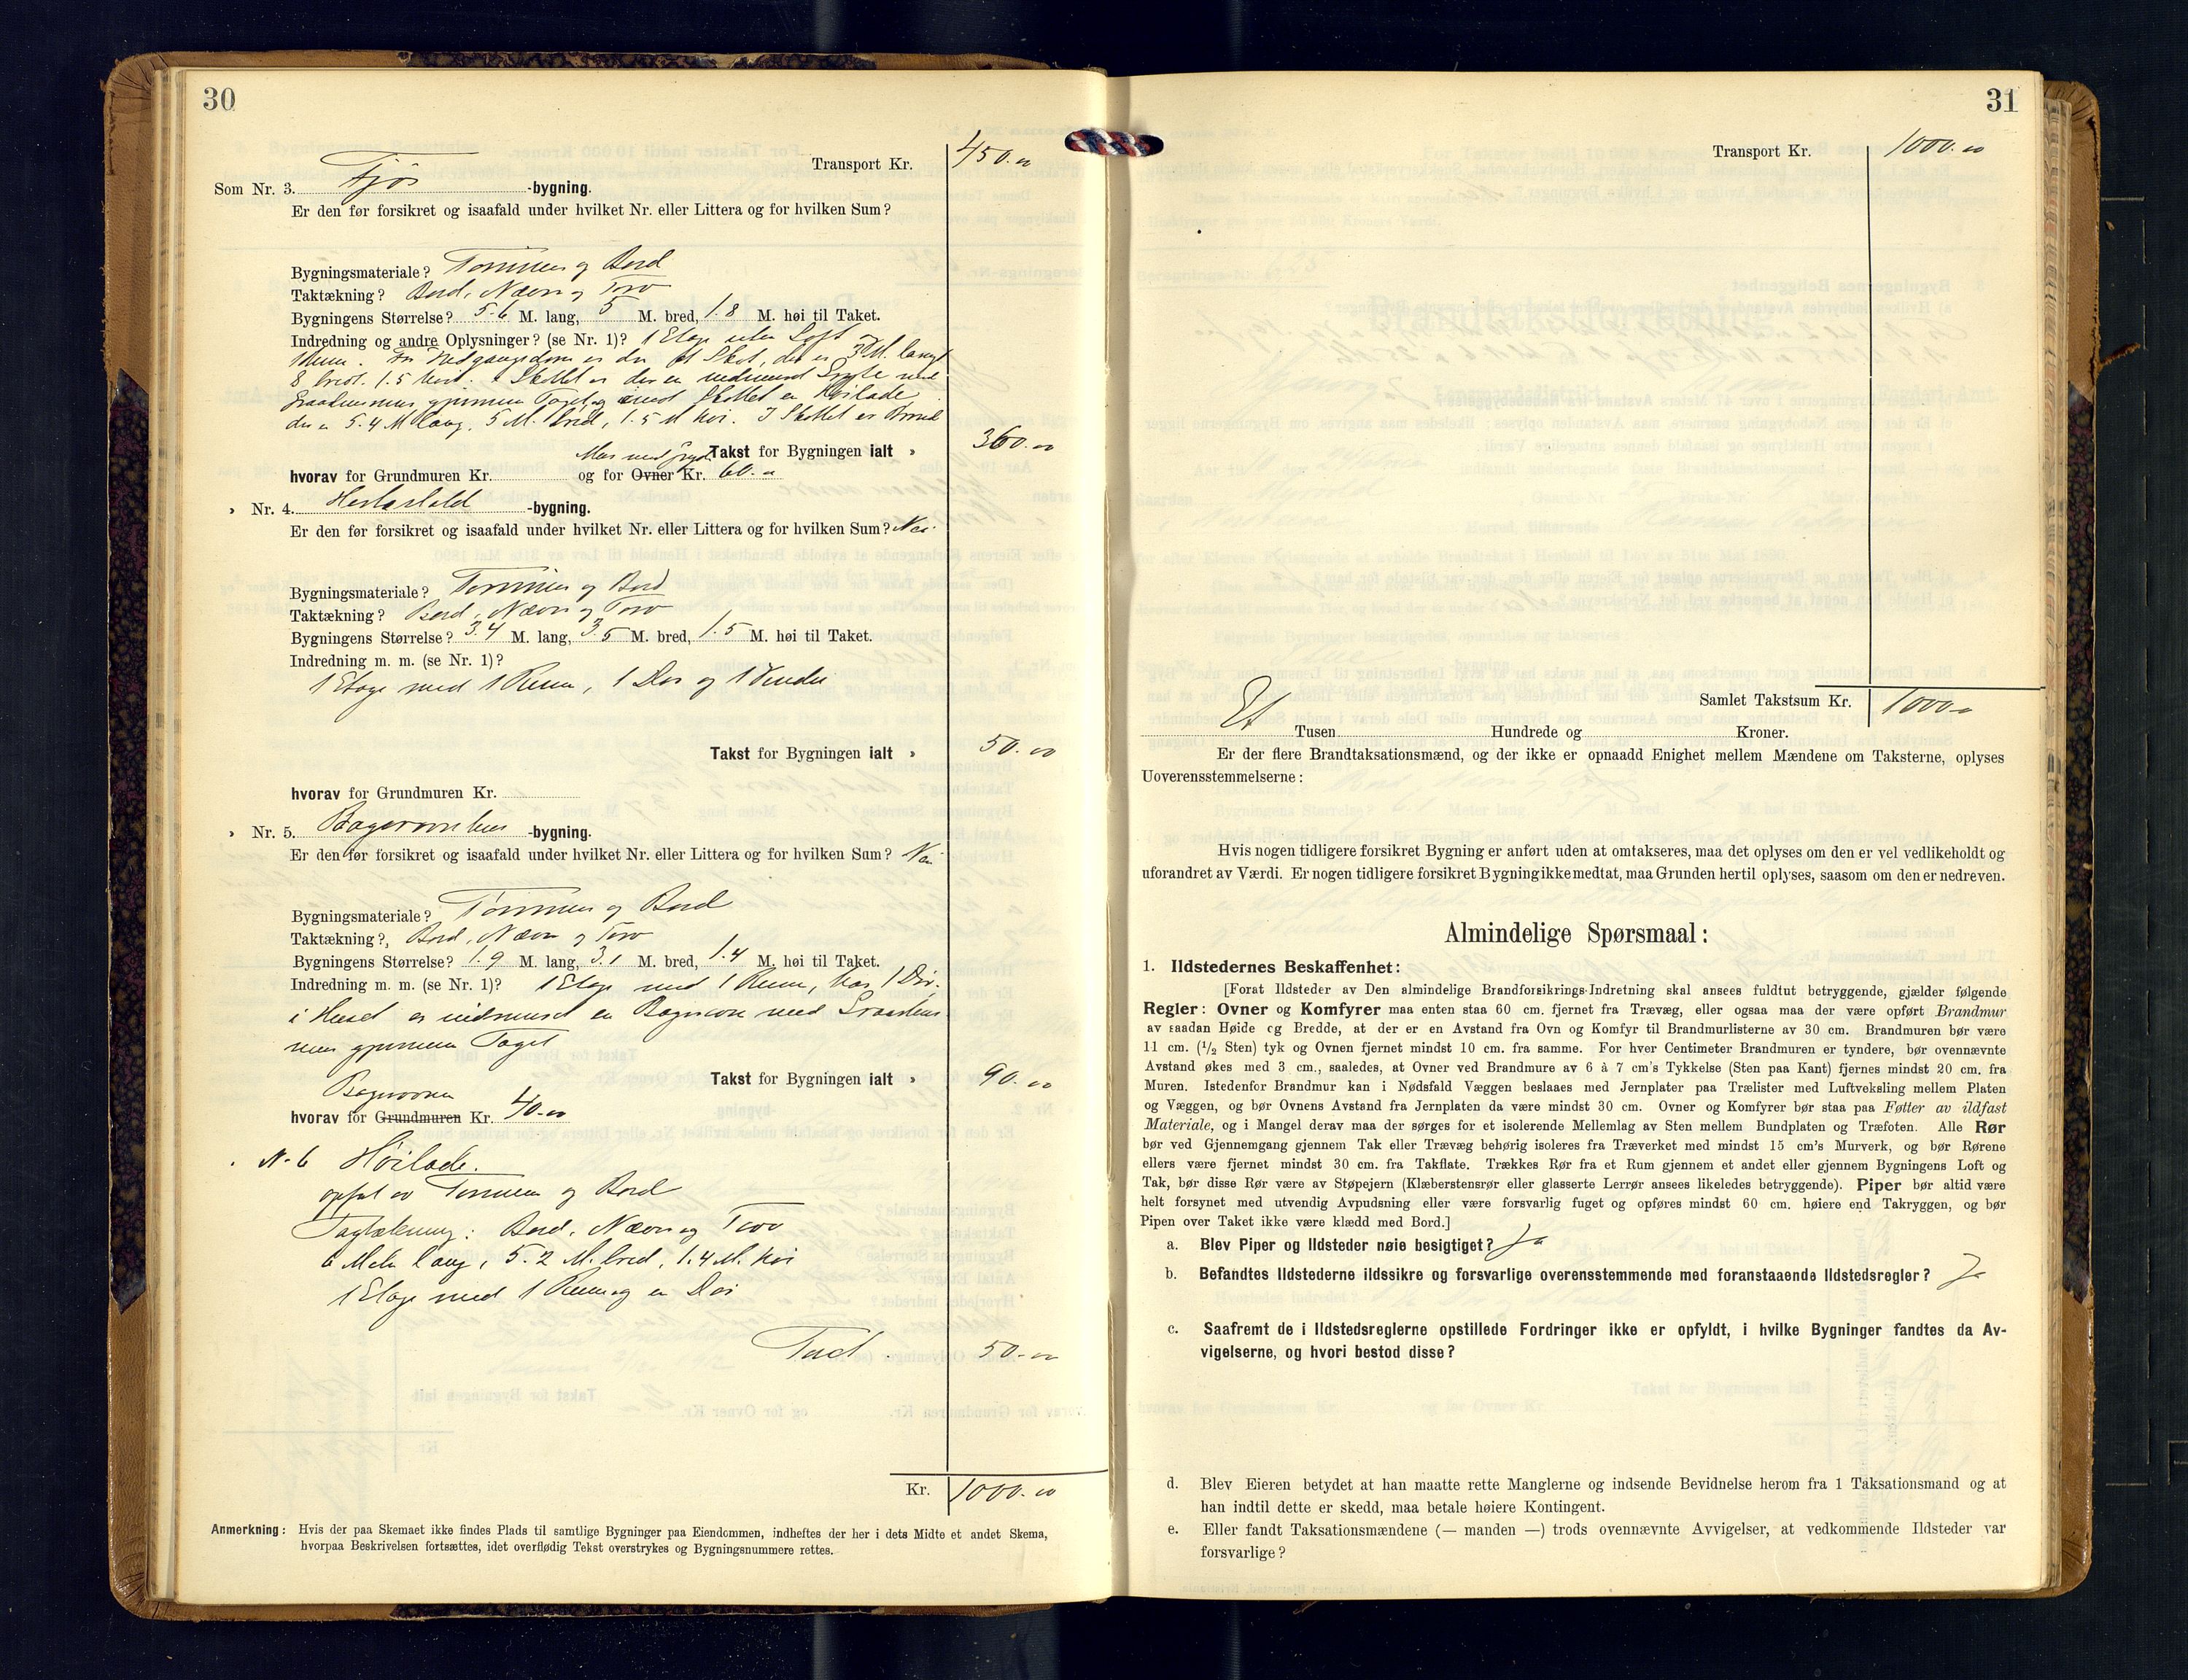 30
Transport Kr. 450.00
Som Nr. 3. Fjøs -bygning.
Er den før forsikret og isaafald under hvilket Nr. eller Littera og for hvilken Sum?
Bygningsmateriale? Tømmer og Bord
Taktækning? Bord, Næver og Torv
Bygningens Størrelse? 5.6 M. lang, 5 M. bred, 1.8 M. høi til Taket.
Indredning og andre Oplysninger? (se Nr. 1)? 1 Etage uden Loft
der er 3 M. langt
8 bredt. 1.5 høit. I Skottet er der en indmuret Gryte med
gjennem Taget og Skottet en Høilade,
der er 5.4 M lang, 5 M. bred, 1.5 M høi. I Skottet er Brønd
Takst for Bygningen ialt » 360.00
Mur med gryde
hvorav for Grundmuren Kr. og for Ovner Kr. 60.00
» Nr. 4. Hestestald -bygning.
Er den før forsikret og isaafald under hvilket Nr. eller Littera og for hvilken Sum? Nei
Bygningsmateriale? Tømmer og Bord
Taktækning? Bord, Næver og Torv
Bygningens Størrelse? 3.4 M. lang, 3.5 M. bred, 1.5 M. høi til Taket.
Indredning m. m. (se Nr. 1)?
1 Etage med 1 Rum, 1 Dør og 1 Vindu
Takst for Bygningen ialt » 50.00
hvorav for Grundmuren Kr.
» Nr. 5. Bagerovnhus -bygning.
Er den før forsikret og isaafald under hvilket Nr. eller Littera og for hvilken Sum? Nei
Bygningsmateriale? Tømmer og Bord
Taktækning? Bord, Næver og Torv
Bygningens Størrelse? 1.9 M. lang, 3.1 M. bred, 1.4 M. høi til Taket.
Indredning m. m. (se Nr. 1)? 1 Etage med 1 Rum, har 1 Dør,
i Huset er indmuret en Bagerovn med Graastens
mur gjennem Taget
Takst for Bygningen ialt » 90.00
Bagerovnen
hvorav for Grundmuren Kr. 40.00
N. 6 Høilade.
opført av Tømmer og Bord
Tagtækning: Bord, Næver og Torv
6 Meter lang, 5.2 M. bred, 1.4 M. høi
1 Etage med 1 Rum og en Dør
Taxt 50.00
Kr. 1000.00
Anmerkning: Hvis der paa Skemaet ikke findes Plads til samtlige Bygninger paa Eiendommen, indheftes der her i dets Midte et andet Skema,
hvorpaa Beskrivelsen fortsættes, idet overflødig Tekst overstrykes og Bygningsnummere rettes.
31
Transport Kr. 1000.00
Samlet Takstsum Kr. 1000.00
Et Tusen Hundrede og Kroner.
Er der flere Brandtaksationsmænd, og der ikke er opnaadd Enighet mellem Mændene om Taksterne, oplyses
Uoverensstemmelserne:
Hvis nogen tidligere forsikret Bygning er anført uden at omtakseres, maa det oplyses om den er vel vedlikeholdt og
uforandret av Værdi. Er nogen tidligere forsikret Bygning ikke medtat, maa Grunden hertil oplyses, saasom om den er nedreven.
Almindelige Spørsmaal:
1. Ildstedernes Beskaffenhet:
[Forat Ildsteder av Den almindelige Brandforsikrings-Indretning skal ansees fuldtut betryggende, gjælder følgende
Regler: Ovner og Komfyrer maa enten staa 60 cm. fjernet fra Trævæg, eller ogsaa maa der være opført Brandmur
av saadan Høide og Bredde, at der er en Avstand fra Ovn og Komfyr til Brandmurlisterne av 30 cm. Brandmuren bør være
11 cm. (1/2 Sten) tyk og Ovnen fjernet mindst 10 cm. fra samme. For hver Centimeter Brandmuren er tyndere, bør ovennævnte
Avstand økes med 3 cm., saaledes, at Ovner ved Brandmure av 6 à 7 cm's Tykkelse (Sten paa Kant) fjernes mindst 20 cm. fra
Muren. Istedenfor Brandmur kan i Nødsfald Væggen beslaaes med Jernplater paa Trælister med Luftveksling mellem Platen
og Væggen, og bør Ovnens Avstand fra Jernplaten da være mindst 30 cm. Ovner og Komfyrer bør staa paa Føtter av ildfast
Materiale, og i Mangel derav maa der sørges for et isolerende Mellemlag av Sten mellem Bundplaten og Træfoten. Alle Rør
bør ved Gjennemgang gjennem Tak eller Trævæg behørig isoleres fra Træverket med mindst 15 cm's Murverk, og bør Rørene
ellers være fjernet mindst 30 cm. fra Takflate. Trækkes Rør fra et Rum gjennem et andet eller gjennem Bygningens Loft og
Tak, bør disse Rør være av Støpejern (Klæberstensrør eller glasserte Lerrør ansees likeledes betryggende). Piper bør altid være
helt forsynet med utvendig Avpudsning eller være forsvarlig fuget og opføres mindst 60 cm. høiere end Takryggen, og bør
Pipen over Taket ikke være klædd med Bord.]
a. Blev Piper og Ildsteder nøie besigtiget? Ja
b. Befandtes Ildstederne ildssikre og forsvarlige overensstemmende med foranstaaende Ildstedsregler? Ja
c. Saafremt de i Ildstedsreglerne opstillede Fordringer ikke er opfyldt, i hvilke Bygninger fandtes da Av-
vigelserne, og hvori bestod disse?
d. Blev Eieren betydet at han maatte rette Manglerne og indsende Bevidnelse herom fra 1 Taksationsmand og at
han indtil dette er skedd, maa betale høiere Kontingent.
e. Eller fandt Taksationsmændene (— manden —) trods ovennævnte Avvigelser, at vedkommende Ildsteder var
forsvarlige?